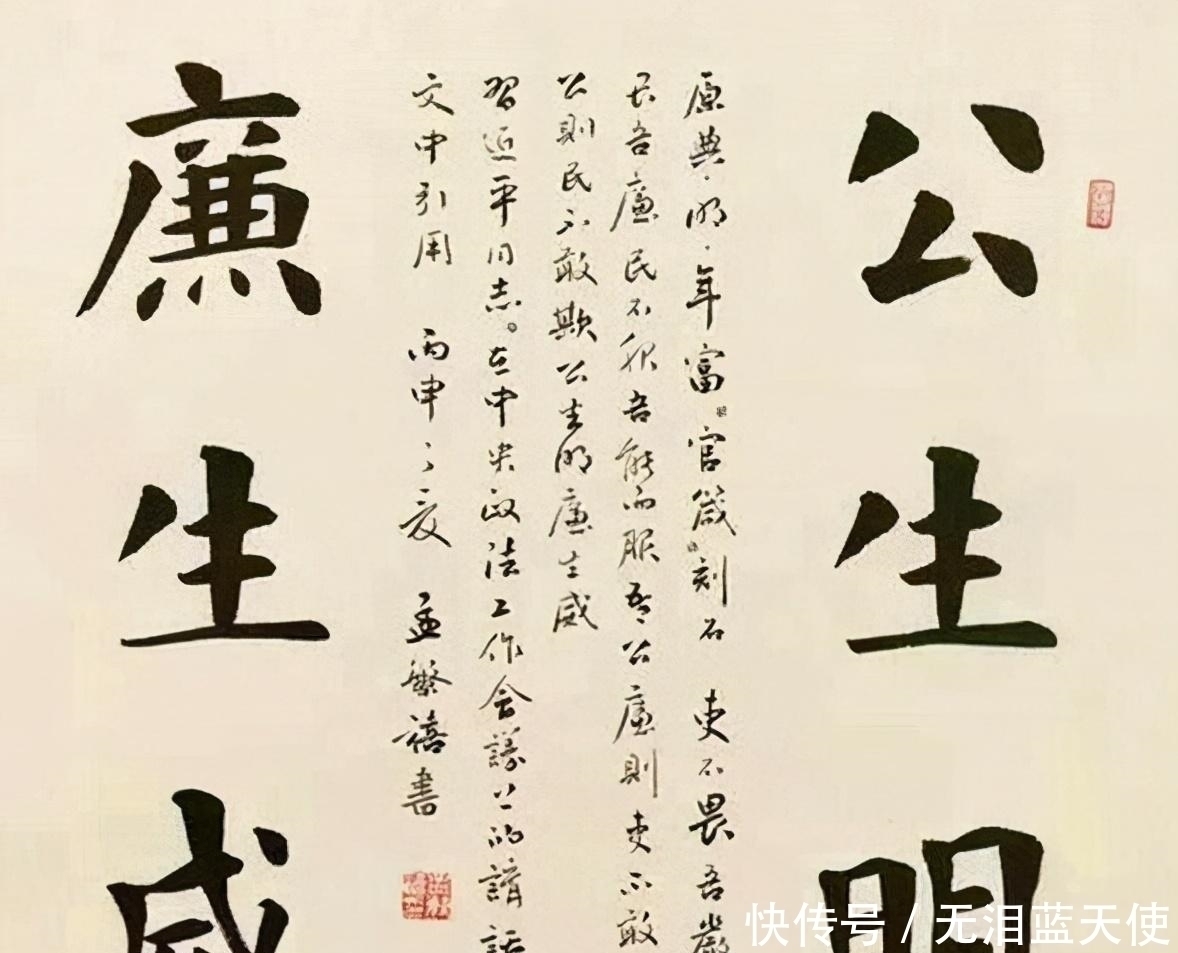 公生明
原典·明·年富。官箴刻石 吏不畏吾嚴
畏吾廉民不服吾能而服吾公廉則吏不敢
公則民不敢欺公生明廉生威
習近平同志。在中央政法工作會議上的講話
文中引用 丙申之夏 孟繁禧書
廉生威
快传号 / 无泪蓝天使